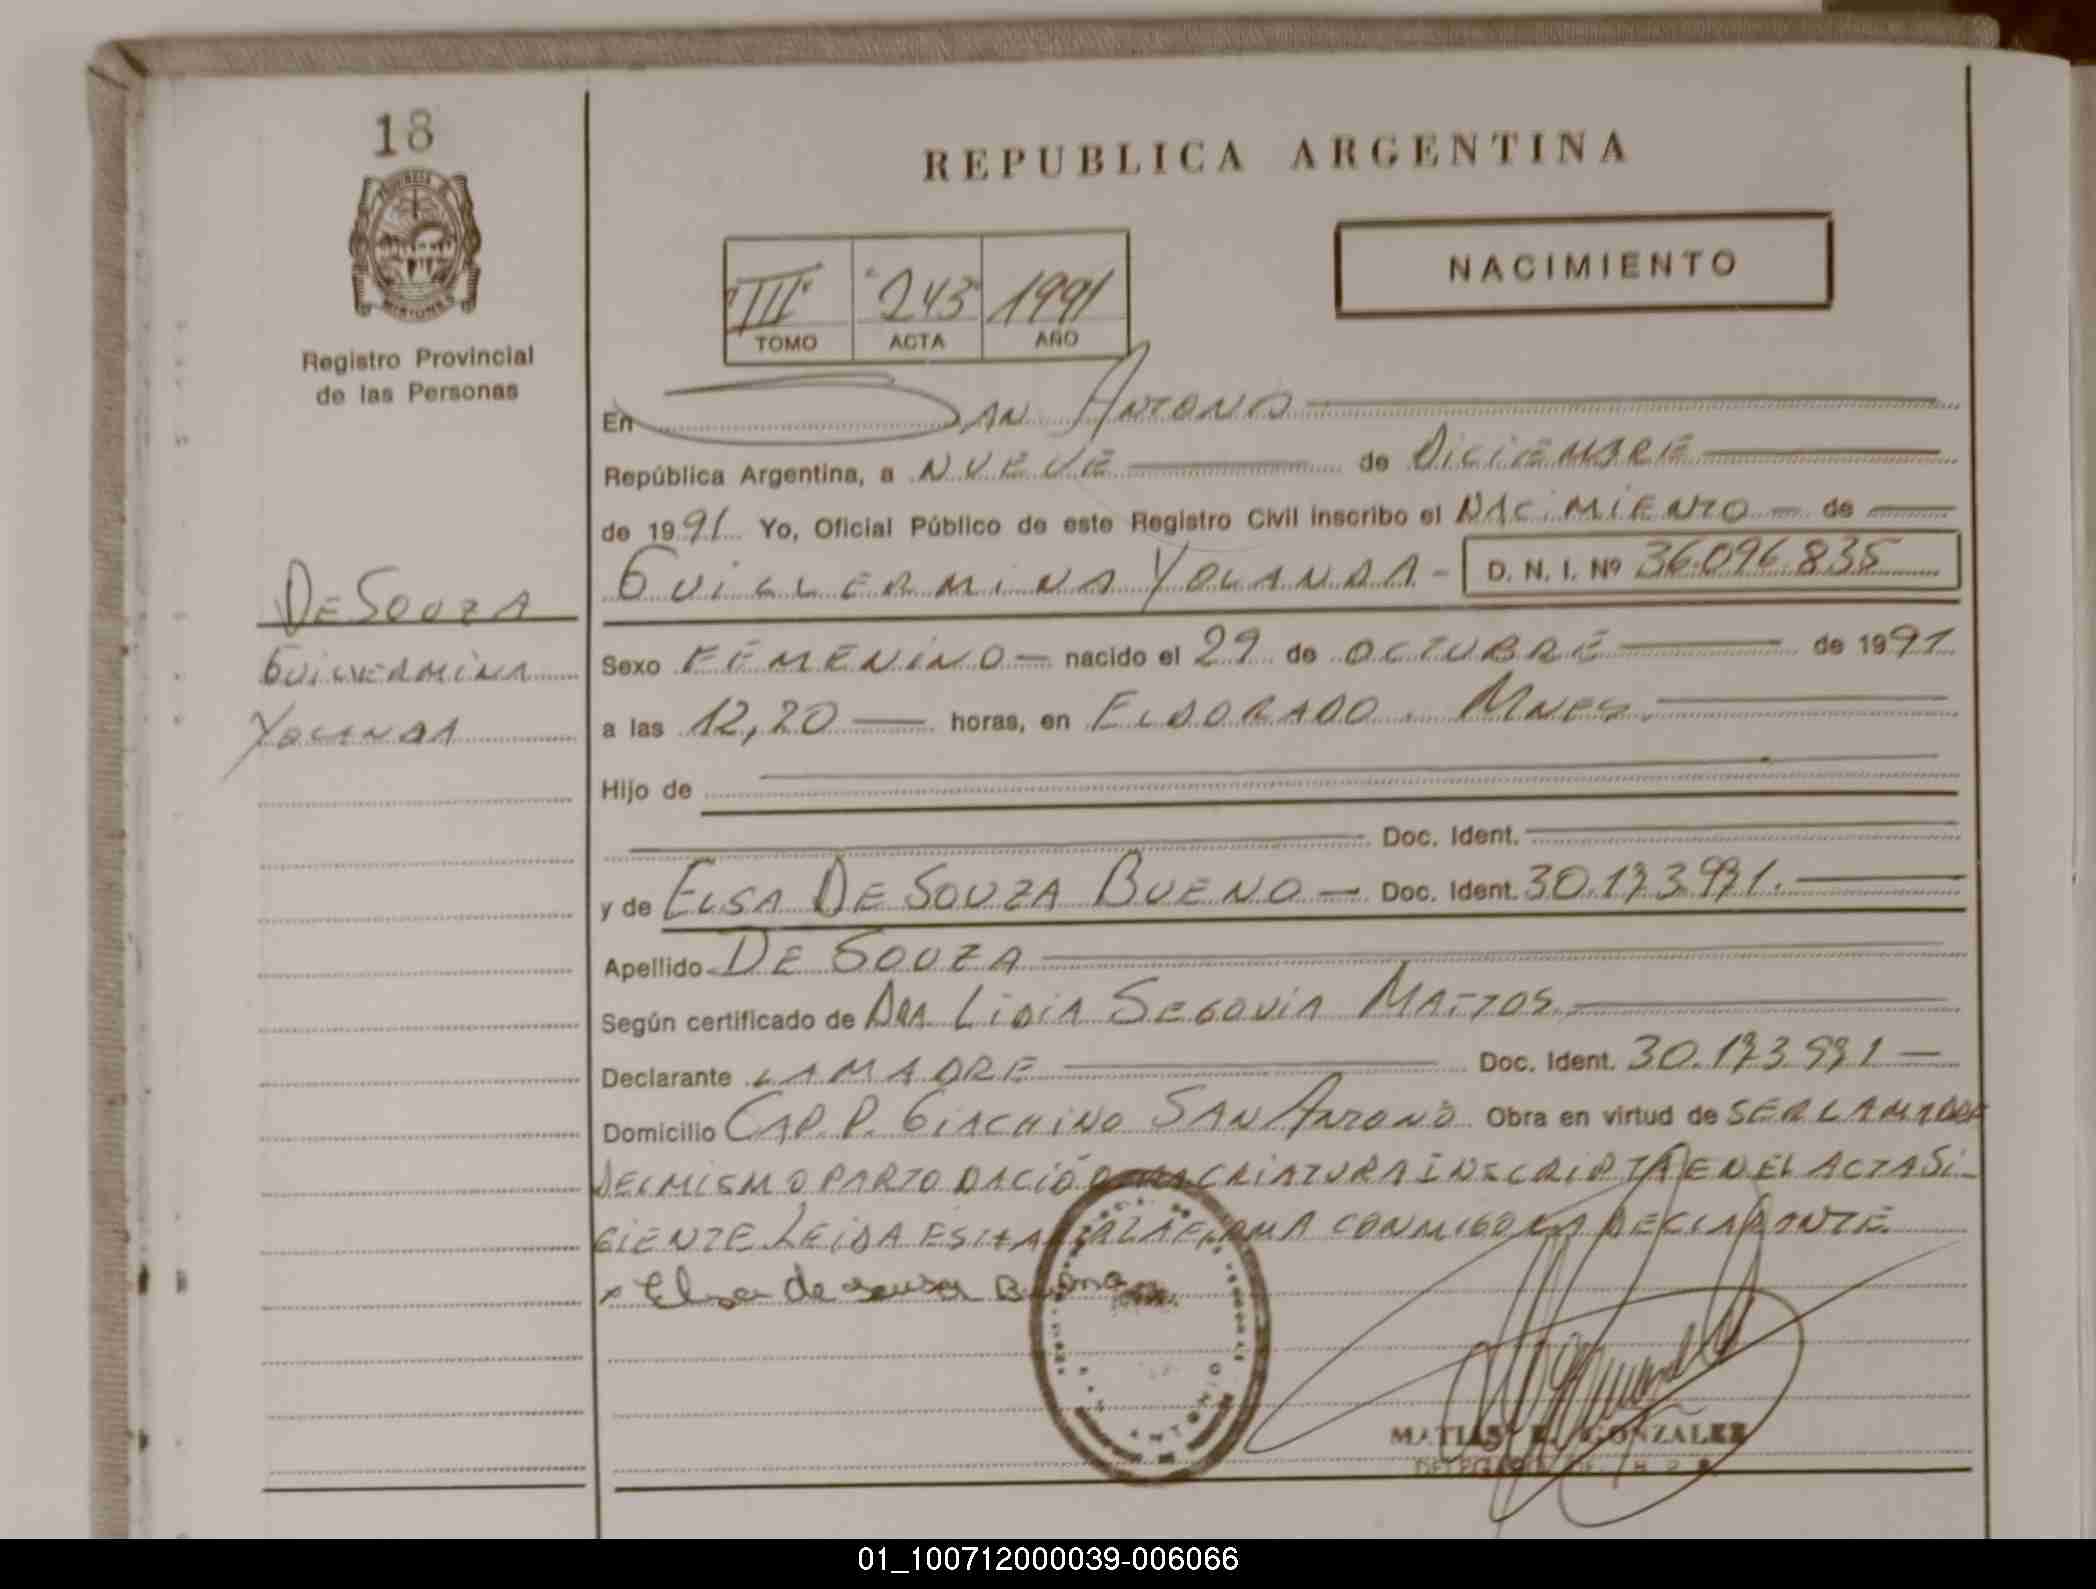 18
REPUBLICA ARGENTINA
NACIMIENTO
"III" "243" 1991
TOMO ACTA AÑO
Registro Provincial
de las Personas
En SAN ANTONO
República Argentina, a NUEVE de DICIEMBRE
de 1991 Yo, Oficial Público de este Registro Civil inscribo el NACIMIENTO - de
GUILLERMINA YOLANDA - D. N. I. Nº 36.096.835
DE SOUZA
GUILLERMINA
YOLANDA
Sexo FEMENINO - nacido el 29 de OCTUBRE de 1991
a las 12,20 horas, en ELDORADO. MNES.
Hijo de
Doc. Ident.
y de ELSA DE SOUZA BUENO - Doc. Ident. 30.173.971.
Apellido DE SOUZA
Según certificado de DRA LIDIA SEGOVIA MATTOS
Declarante LA MADRE Doc. Ident. 30.173.971
Domicilio CAP. P. GIACHINO SAN ANTONO Obra en virtud de SER LA MADRE
DEL MISMO PARTO NACIÓ LA CRIATURA INSCRIPTA EN EL ACTA SI-
GIENTE LEIDA ESTA ACTA FIRMA CONMIGO LA DECLARANTE
x Elsa de sousa Bueno
SAN ANTONIO
MATIAS R. GONZALEZ